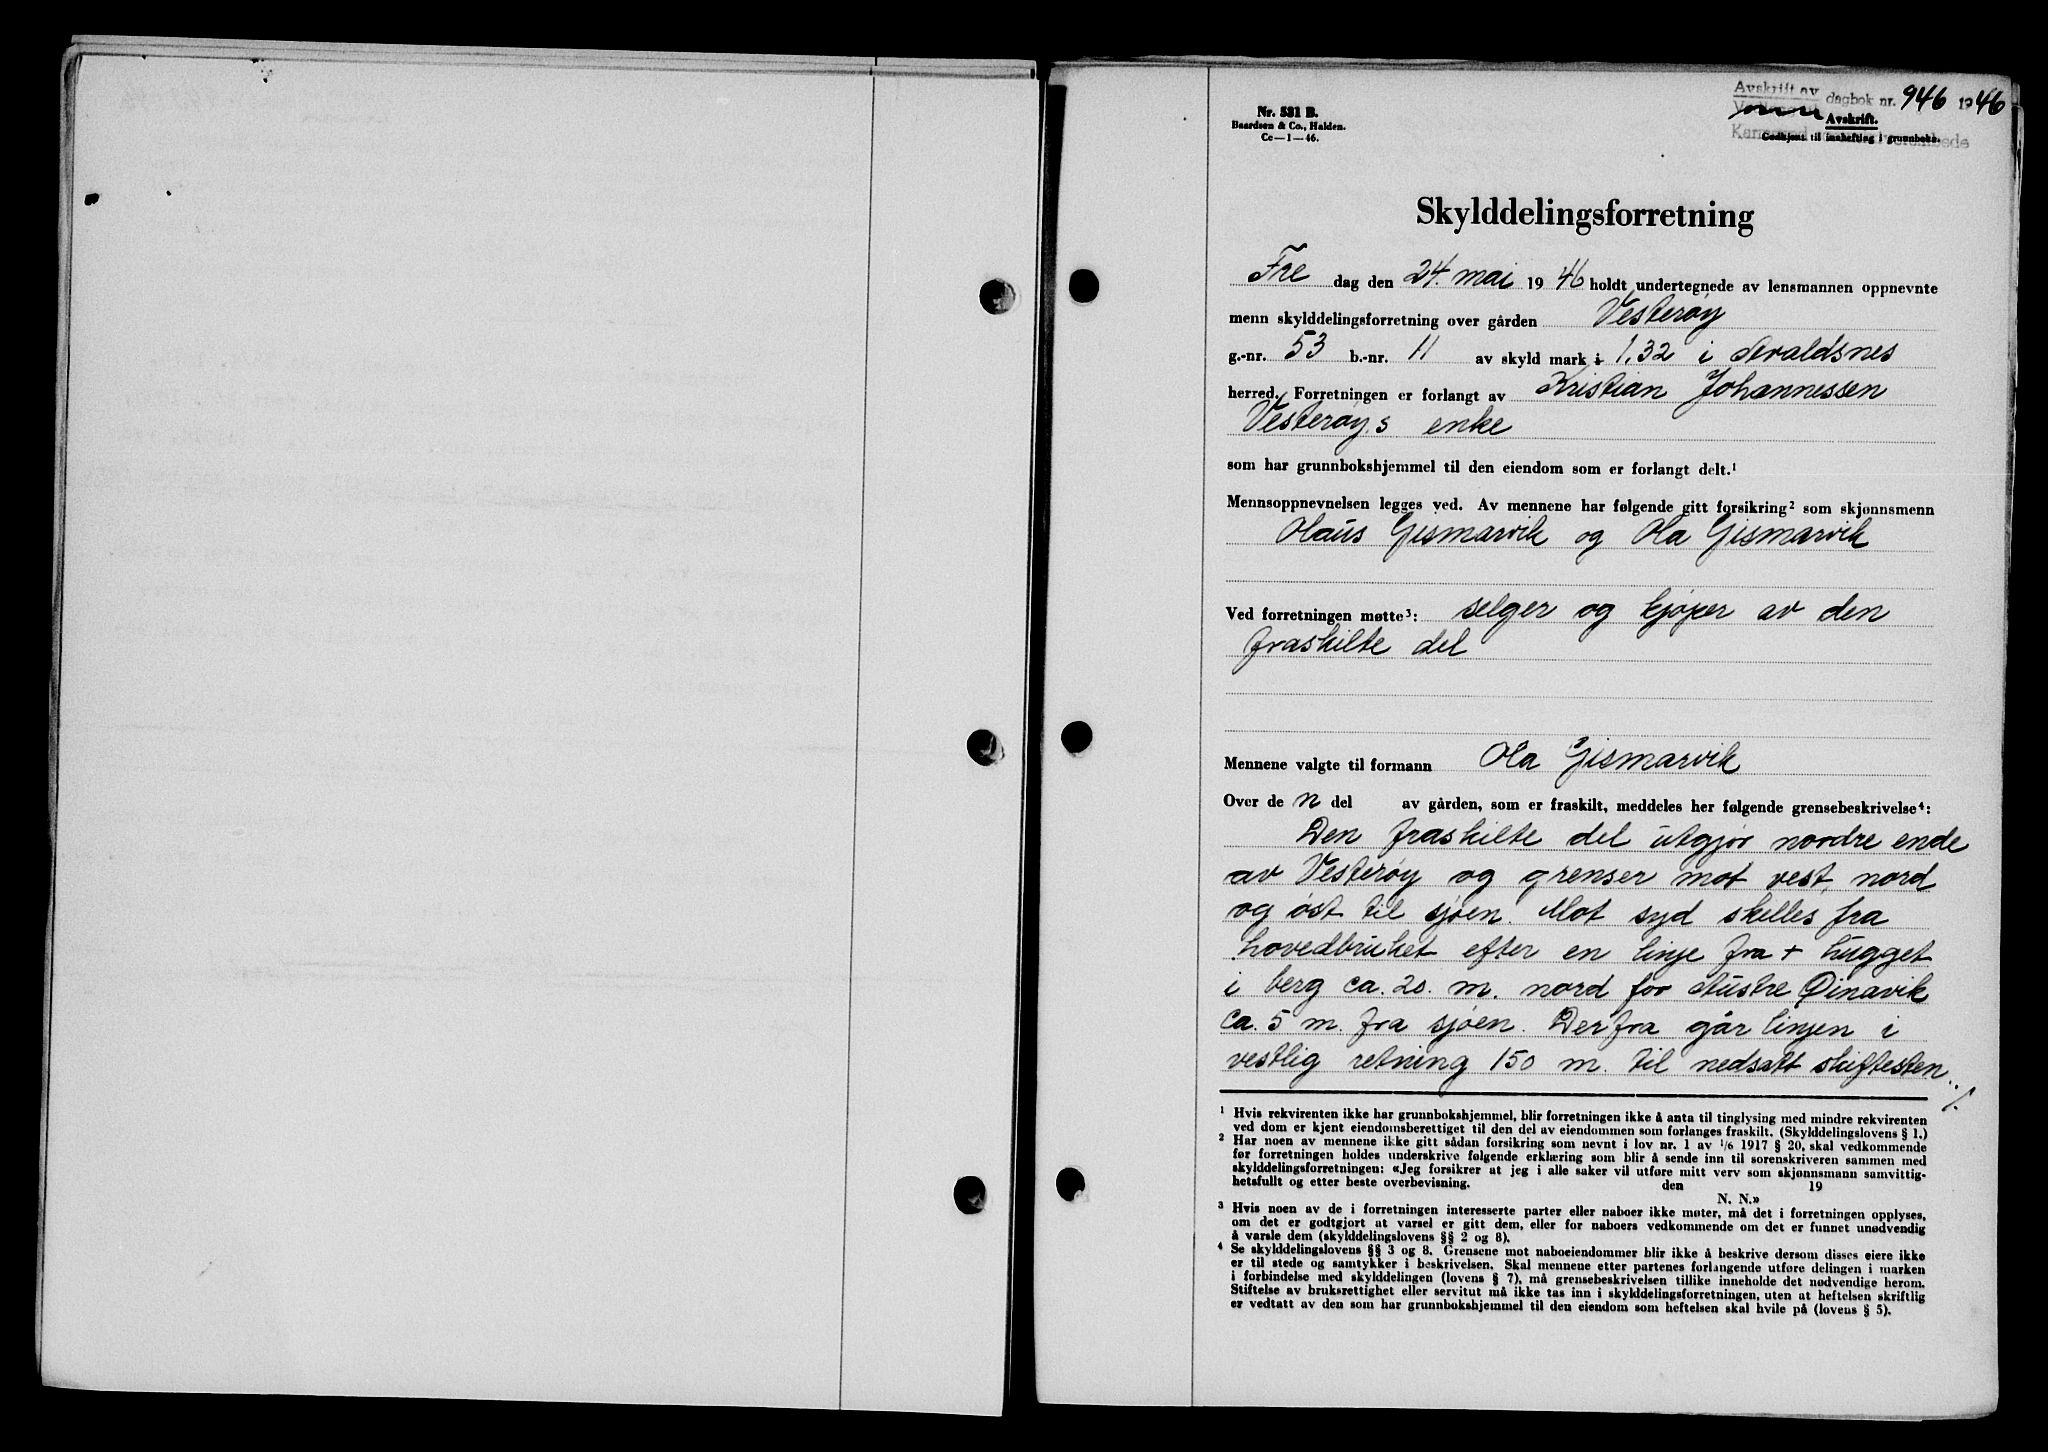 Avskrift av
dagbok nr. 946 1946
Nr. 531 B.
Baardsen & Co., Halden.
Cc—1—46.
Avskrift.
Godkjent til innhefting i grunnboka.
Skylddelingsforretning
Fre dag den 24. mai 1946 holdt undertegnede av lensmannen oppnevnte
menn skylddelingsforretning over gården Vesterøy
g.-nr. 53 b.-nr. 11 av skyld mark i 1,32 i Avaldsnes
herred. Forretningen er forlangt av Kristian Johannessen
Vesterøy,s enke
som har grunnbokshjemmel til den eiendom som er forlangt delt.¹
Mennsoppnevnelsen legges ved. Av mennene har følgende gitt forsikring² som skjønnsmenn
Olaus Gismarvik og Ola Gismarvik
Ved forretningen møtte³: selger og kjøper av den
fraskilte del
Mennene valgte til formann Ola Gismarvik
Over de n del av gården, som er fraskilt, meddeles her følgende grensebeskrivelse⁴:
Den fraskilte del utgjør nordre ende
av Vesterøy og grenser mot vest, nord
og øst til sjøen. Mot syd skilles fra
hovedbruket efter en linje fra + hugget
i berg ca. 20. m. nord for Austre Dinavik
ca. 5 m. fra sjøen. Derfra går linjen i
vestlig retning 150 m. til nedsatt skiftesten
./.
¹ Hvis rekvirenten ikke har grunnbokshjemmel, blir forretningen ikke å anta til tinglysing med mindre rekvirenten
ved dom er kjent eiendomsberettiget til den del av eiendommen som forlanges fraskilt. (Skylddelingslovens § 1.)
² Har noen av mennene ikke gitt sådan forsikring som nevnt i lov nr. 1 av 1/6 1917 § 20, skal vedkommende
før forretningen holdes underskrive følgende erklæring som blir å sende inn til sorenskriveren sammen med
skylddelingsforretningen: «Jeg forsikrer at jeg i alle saker vil utføre mitt verv som skjønnsmann samvittig-
hetsfullt og etter beste overbevisning. den 19
N. N.»
³ Hvis noen av de i forretningen interesserte parter eller naboer ikke møter, må det i forretningen opplyses,
om det er godtgjort at varsel er gitt dem, eller for naboers vedkommende om det er funnet unødvendig
å varsle dem (skylddelingslovens §§ 2 og 8).
⁴ Se skylddelingslovens §§ 3 og 8. Grensene mot naboeiendommer blir ikke å beskrive dersom disses eiere ikke
er til stede og samtykker i beskrivelsen. Skal mennene etter partenes forlangende utføre delingen i marken
i forbindelse med skylddelingen (lovens § 7), må grensebeskrivelsen tillike inneholde det nødvendige herom.
Stiftelse av bruksrettighet eller servitut må ikke tas inn i skylddelingsforretningen, uten at heftelsen skriftlig
er vedtatt av den som har grunnbokshjemmel til den eiendom som heftelsen skal hvile på (lovens § 5).